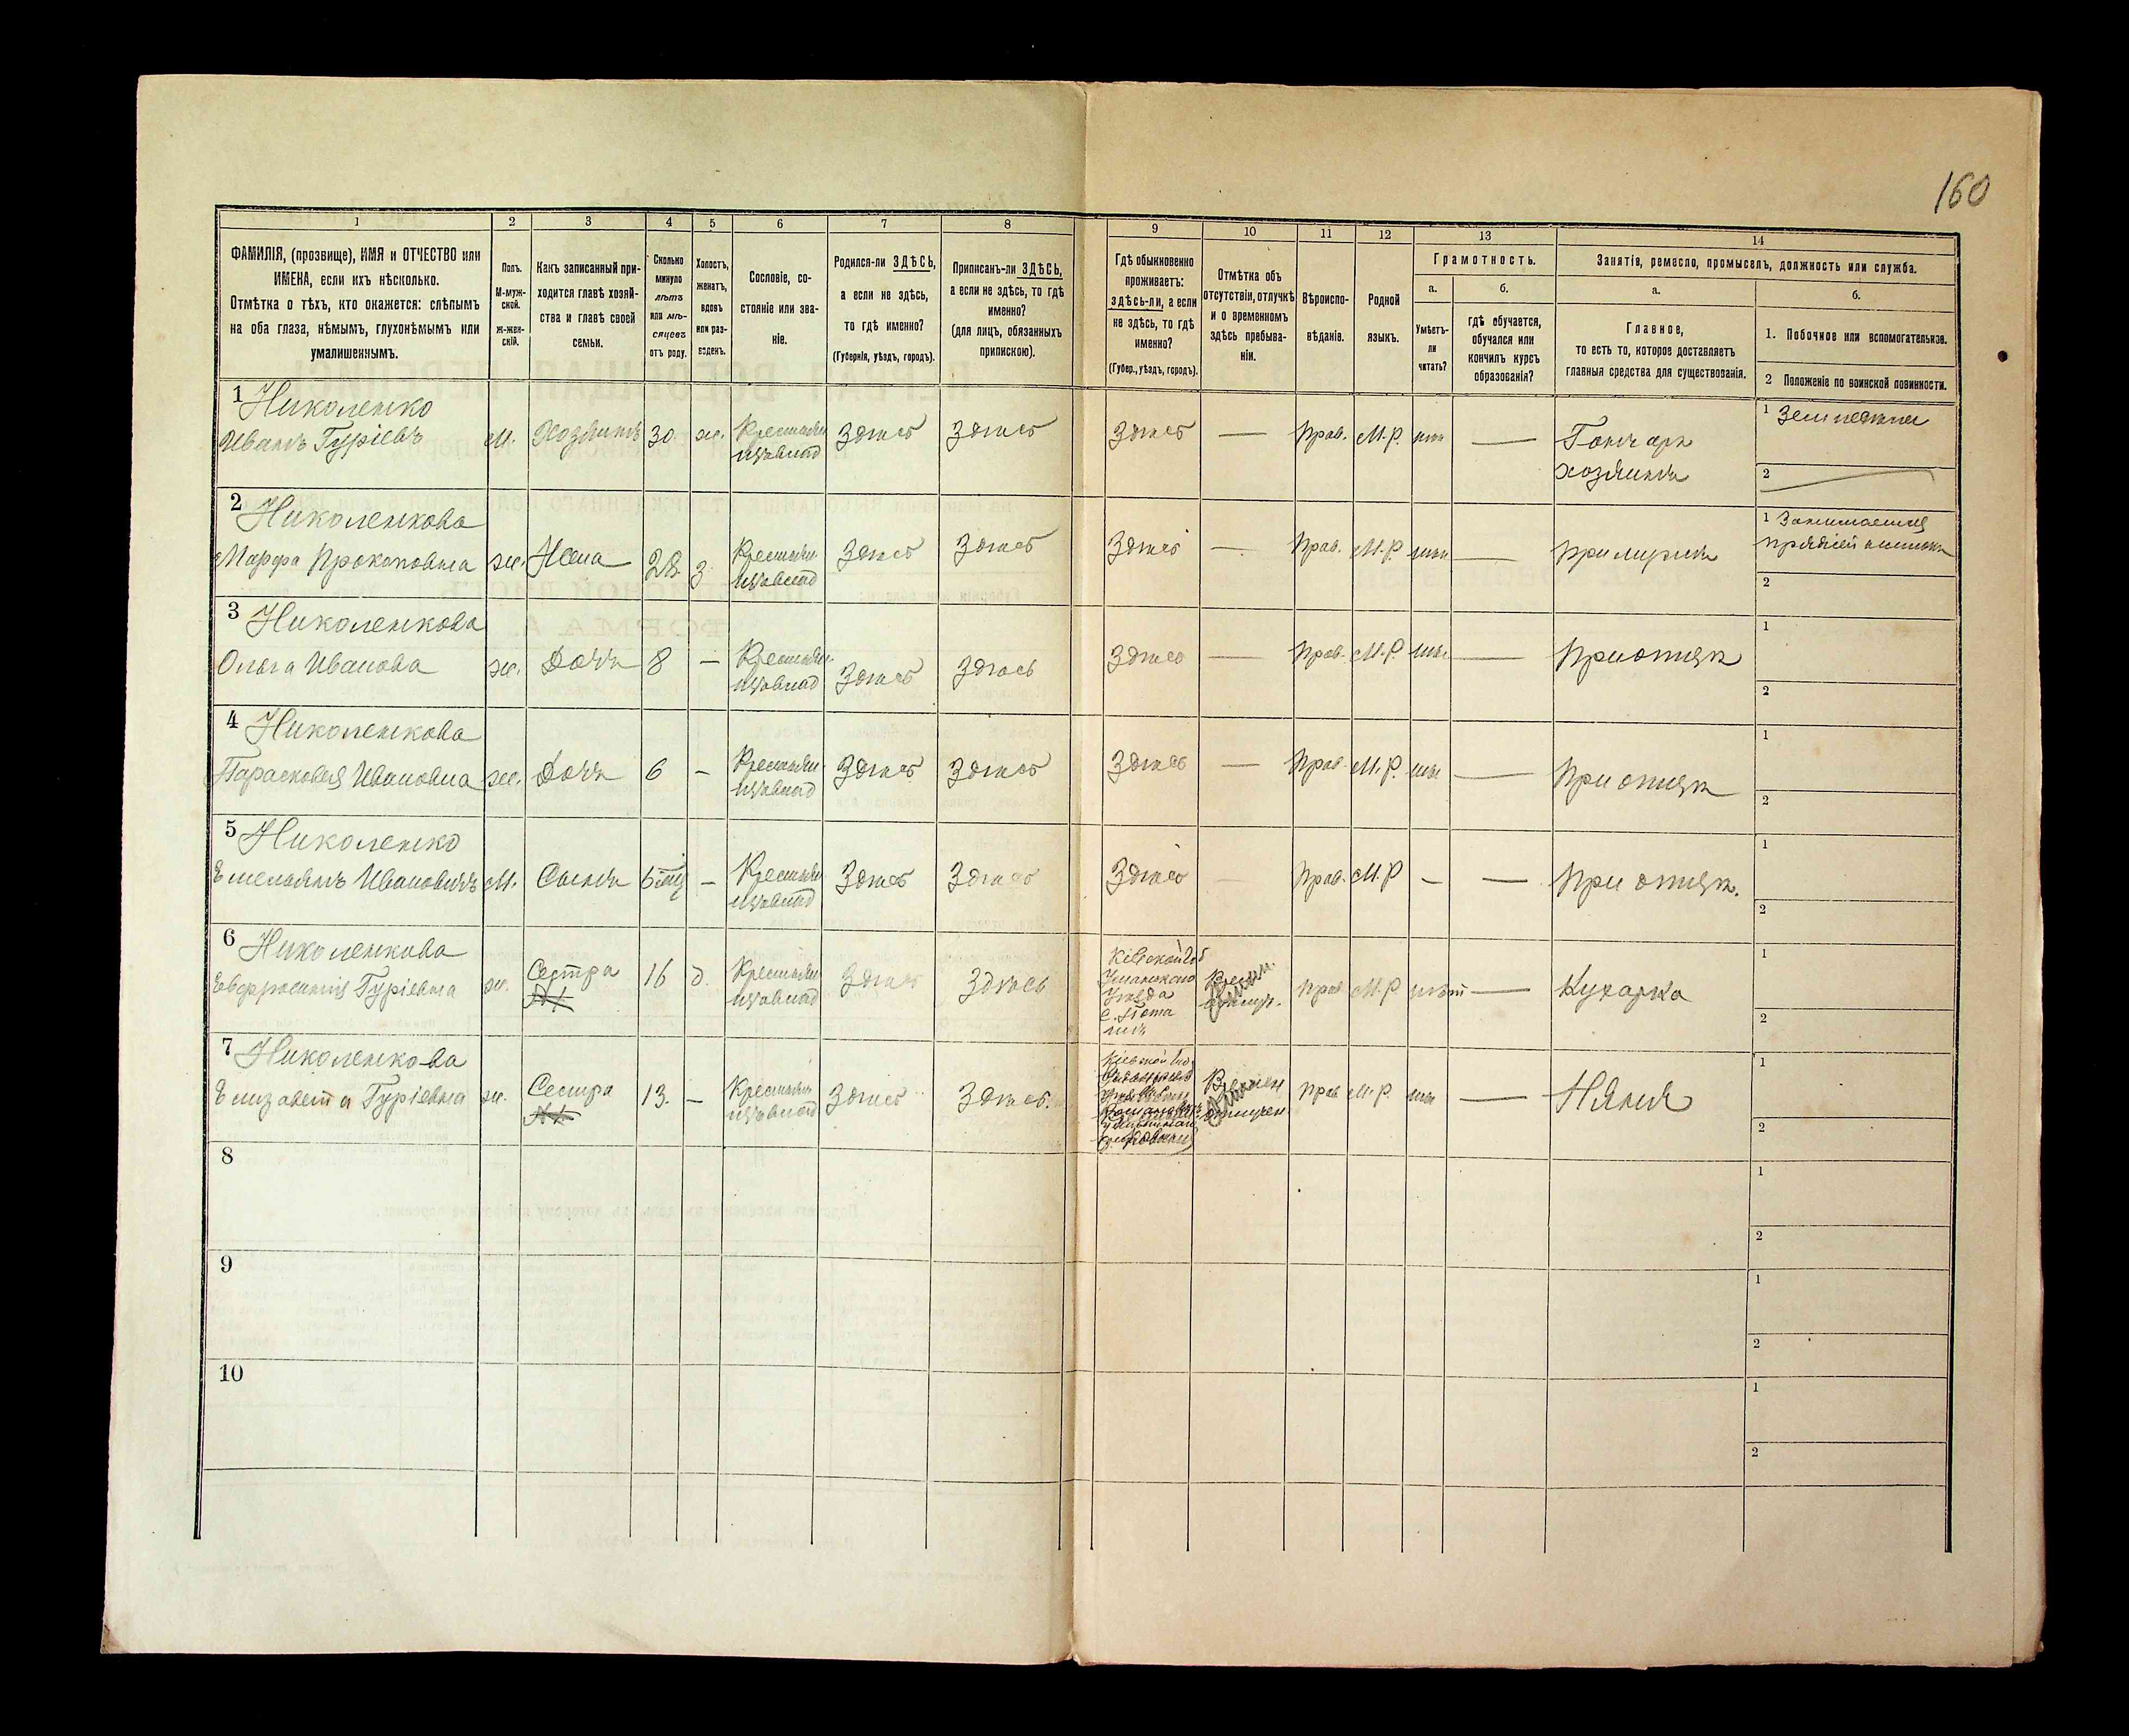 160
1 2 3 4 5 6 7 8 9 10 11 12 13 14
ФАМИЛІЯ, (прозвище), ИМЯ и ОТЧЕСТВО или
ИМЕНА, если ихъ нѣсколько.
Отмѣтка о тѣхъ, кто окажется: слѣпымъ
на оба глаза, нѣмымъ, глухонѣмымъ или
умалишеннымъ.
Полъ.
М-муж-
ской.
ж-жен-
скій.
Какъ записанный при-
ходится главѣ хозяй-
ства и главѣ своей
семьи.
Сколько
минуло
лѣтъ
или мѣ-
сяцевъ
отъ роду.
Холостъ,
женатъ,
вдовъ
или раз-
веденъ.
Сословіе, со-
стояніе или зва-
ніе.
Родился-ли ЗДѢСЬ,
а если не здѣсь,
то гдѣ именно?
(Губернія, уѣздъ, городъ).
Приписанъ-ли ЗДѢСЬ,
а если не здѣсь, то гдѣ
именно?
(для лицъ, обязанныхъ
припискою).
Гдѣ обыкновенно
проживаетъ:
здѣсь-ли, а если
не здѣсь, то гдѣ
именно?
(Губер., уѣздъ, городъ).
Отмѣтка объ
отсутствіи, отлучкѣ
и о временномъ
здѣсь пребыва-
ніи.
Вѣроиспо-
вѣданіе.
Родной
языкъ.
Грамотность.
а.
Умѣетъ-
ли
читать?
б.
гдѣ обучается,
обучался или
кончилъ курсъ
образованія?
Занятіе, ремесло, промыселъ, должность или служба.
а.
Главное,
то есть то, которое доставляетъ
главныя средства для существованія.
б.
1. Побочное или вспомогательное.
2 Положеніе по воинской повинности.
1 Николенко
Иванъ Гуріевъ
м. Хозяинъ 30 ж. Здѣсь Здѣсь Здѣсь — Прав. М.Р. —
Гончаръ
хозяинъ
1
2
2 Николенкова
Марфа Прокоповна
ж. Жена 28 З Здѣсь Здѣсь Здѣсь — Прав. М.Р. —
1 Занимается
2
3 Николенкова
Ольга Иванова
ж. Дочь 8 — Здѣсь Здѣсь Здѣсь — Прав. М.Р. — При отцѣ
1
2
4 Николенкова
Парасковья Ивановна
ж. Дочь 6 — Здѣсь Здѣсь Здѣсь — Прав. М.Р. — При отцѣ
1
2
5 Николенко
Емельянъ Ивановичъ
м. Сынъ — Здѣсь Здѣсь Здѣсь — Прав. М.Р — — При отцѣ.
1
2
6 Николенкова
Евфросинія Гуріевна
ж. Сестра 16 д. Здѣсь Здѣсь
Кіевской Губ
Уманскаго
Уѣзда
Прав М.Р. нѣт — Кухарка
1
2
7 Николенкова
Елизавета Гуріевна
ж. Сестра 13. — Здѣсь Здѣсь.
Кіевской
Прав М.Р. — Няня
1
2
8
1
2
9
1
2
10
1
2